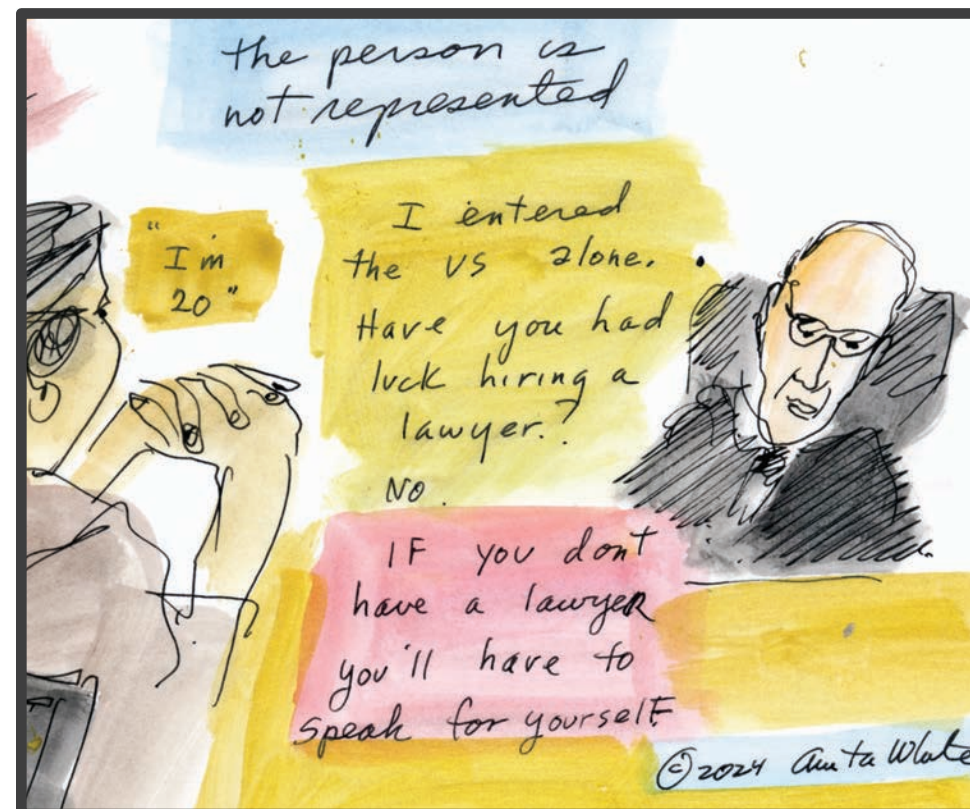 the person is
not represented
"I'm
20"
I entered
the US alone.
Have you had
luck hiring a
lawyer?
No.
IF you don't
have a lawyer
you'll have to
speak for yourself
©2024 Anita White